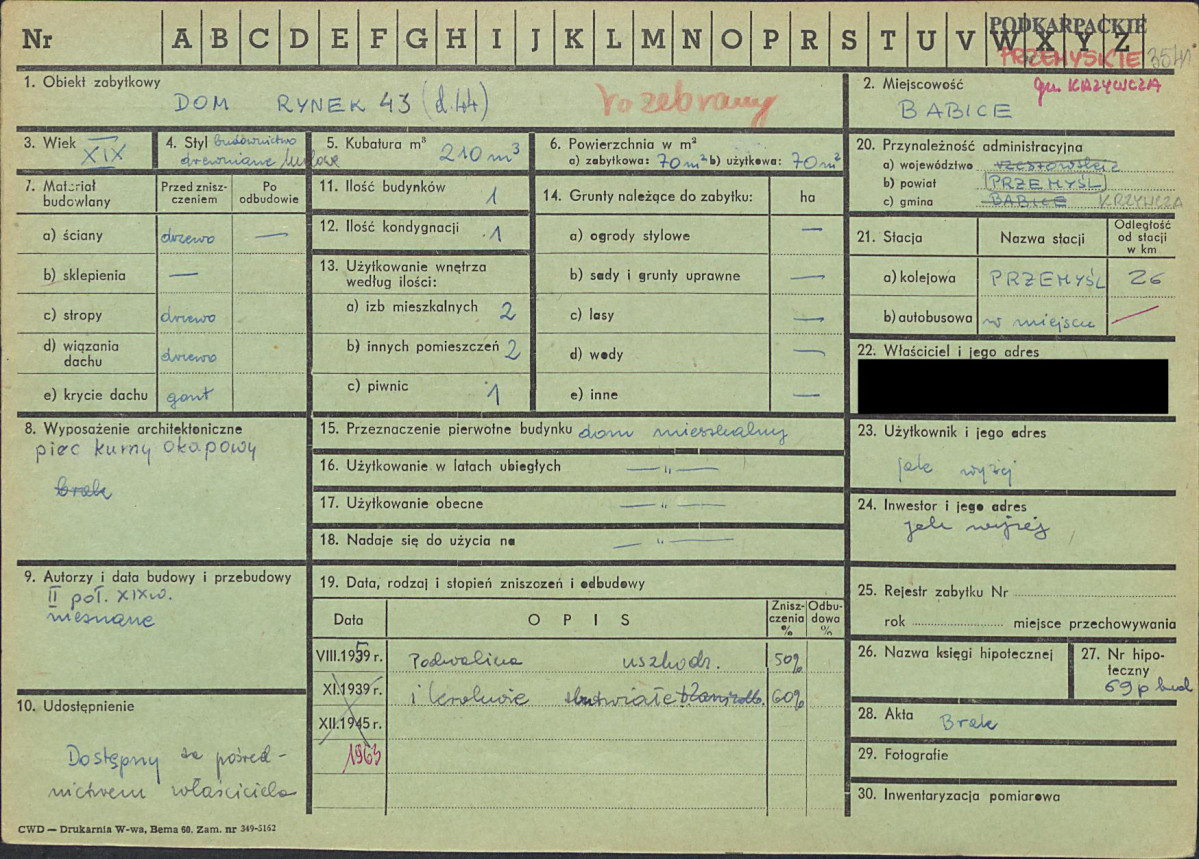 PODKARPACKIE
Nr A B C D E F G H I J K L M N O P R S T U V W X Y Z
PRZEMYSKIE
1. Obiekt zabytkowy
DOM RYNEK 43 (d. 44) rozebrany
2. Miejscowość gm. KRZYWCZA
BABICE
3. Wiek
XIX
4. Styl budownictwo
drewniane ludowe
5. Kubatura m³
210 m³
6. Powierzchnia w m²
a) zabytkowa: 70 m² b) użytkowa: 70 m²
7. Materiał budowlany
Przed zniszczeniem
Po odbudowie
a) ściany drzewo —
b) sklepienia —
c) stropy drzewo
d) wiązania dachu drzewo
e) krycie dachu gont
8. Wyposażenie architektoniczne
piec kurny okapowy
brak
9. Autorzy i data budowy i przebudowy
II poł. XIX w.
nieznane
10. Udostępnienie
Dostępny za pośred-
nictwem właściciela
11. Ilość budynków 1
12. Ilość kondygnacji 1
13. Użytkowanie wnętrza według ilości:
a) izb mieszkalnych 2
b) innych pomieszczeń 2
c) piwnic 1
14. Grunty należące do zabytku: ha
a) ogrody stylowe —
b) sady i grunty uprawne —
c) lasy —
d) wody —
e) inne —
15. Przeznaczenie pierwotne budynku dom mieszkalny
16. Użytkowanie w latach ubiegłych — " —
17. Użytkowanie obecne — " —
18. Nadaje się do użycia na — " —
19. Data, rodzaj i stopień zniszczeń i odbudowy
Data
O P I S
Zniszczenia %
Odbudowa %
VIII.1939 r. Podwalina uszkodz. 50%
XI.1939 r. i krokwie zbutwiałe 60%
XII.1945 r.
1963
20. Przynależność administracyjna
a) województwo rzeszowskie
b) powiat PRZEMYŚL
c) gmina BABICE KRZYWCZA
21. Stacja
Nazwa stacji
Odległość od stacji w km
a) kolejowa PRZEMYŚL 26
b) autobusowa w miejscu
22. Właściciel i jego adres
23. Użytkownik i jego adres
jak wyżej
24. Inwestor i jego adres
jak wyżej
25. Rejestr zabytku Nr
rok miejsce przechowywania
26. Nazwa księgi hipotecznej
27. Nr hipoteczny
69 p bud
28. Akta Brak
29. Fotografie
30. Inwentaryzacja pomiarowa
CWD — Drukarnia W-wa, Bema 60. Zam. nr 349-5162